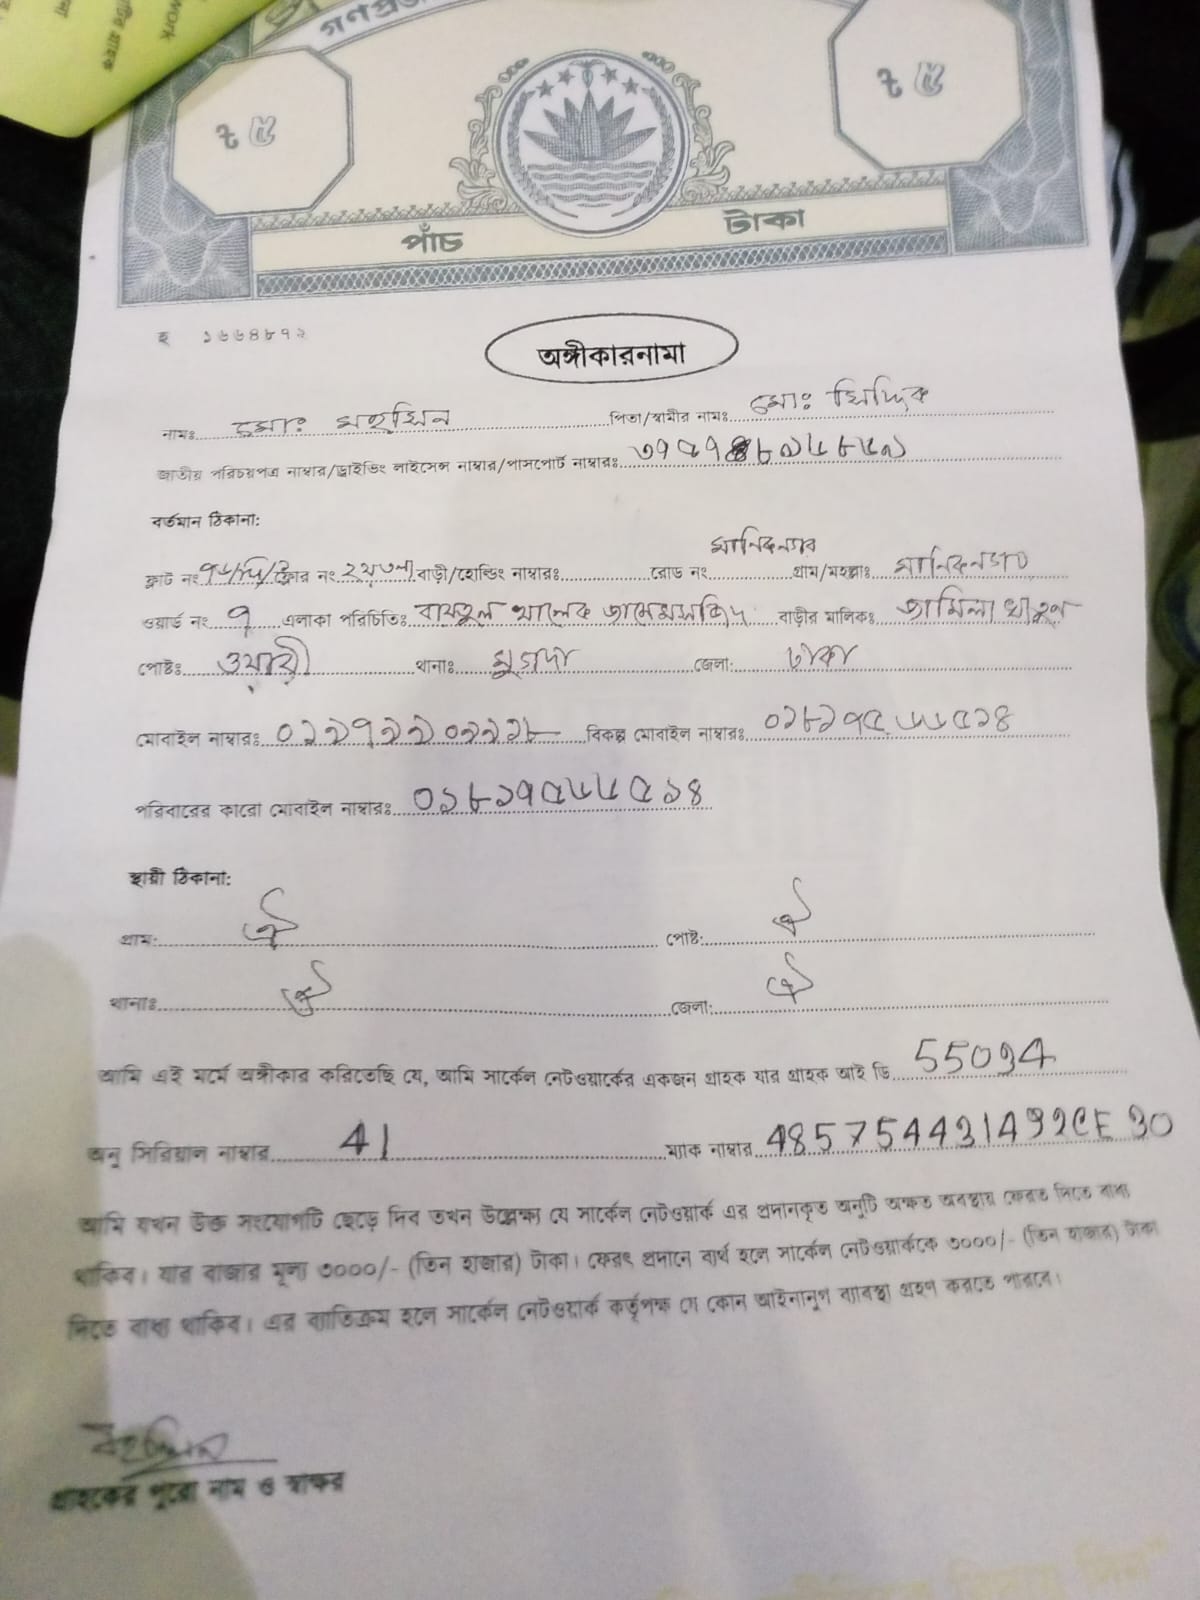 work
গণপ্র
৳ ৫
৳ ৫
পাঁচ টাকা
হ ১৬৬৪৮৭২
অঙ্গীকারনামা
নামঃ মোঃ মহসিন পিতা/স্বামীর নামঃ মোঃ সিদ্দিক
জাতীয় পরিচয়পত্র নাম্বার/ড্রাইভিং লাইসেন্স নাম্বার/পাসপোর্ট নাম্বারঃ
বর্তমান ঠিকানা:
মানিকনগর
ফ্লাট নং ফ্লোর নং বাড়ী/হোল্ডিং নাম্বারঃ রোড নং গ্রাম/মহল্লাঃ মানিকনগর
ওয়ার্ড নং ৭ এলাকা পরিচিতিঃ বায়তুল খালেক জামে মসজিদ বাড়ীর মালিকঃ জামিলা খাতুন
পোষ্টঃ ওয়ারী থানাঃ মুগদা জেলা: ঢাকা
মোবাইল নাম্বারঃ বিকল্প মোবাইল নাম্বারঃ ০১৮১৭৫৬৬৫১৪
পরিবারের কারো মোবাইল নাম্বারঃ ০১৮১৭৫৬৬৫১৪
স্থায়ী ঠিকানা:
গ্রাম: ঐ পোষ্ট: ঐ
থানাঃ ঐ জেলা: ঐ
আমি এই মর্মে অঙ্গীকার করিতেছি যে, আমি সার্কেল নেটওয়ার্কের একজন গ্রাহক যার গ্রাহক আই ডি
অনু সিরিয়াল নাম্বার 41 ম্যাক নাম্বার
আমি যখন উক্ত সংযোগটি ছেড়ে দিব তখন উল্লেক্ষ্য যে সার্কেল নেটওয়ার্ক এর প্রদানকৃত অনুটি অক্ষত অবস্থায় ফেরত দিতে বাধ্য
থাকিব। যার বাজার মূল্য ৩০০০/- (তিন হাজার) টাকা। ফেরৎ প্রদানে ব্যর্থ হলে সার্কেল নেটওয়ার্ককে ৩০০০/- (তিন হাজার) টাকা
দিতে বাধ্য থাকিব। এর ব্যতিক্রম হলে সার্কেল নেটওয়ার্ক কর্তৃপক্ষ যে কোন আইনানুগ ব্যবস্থা গ্রহণ করতে পারবে।
মহসিন
গ্রাহকের পুরো নাম ও স্বাক্ষর